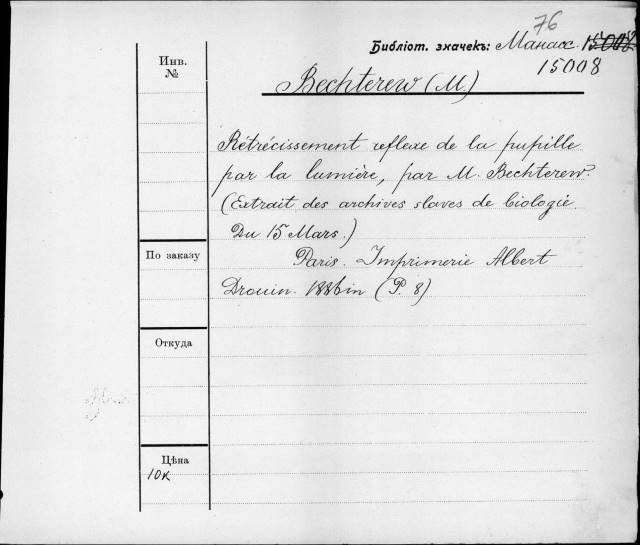 76
Библіот. значекъ: Манасс. 15002
15008
Инв.
№
Bechterew (M.)
Rétrécissement reflexe de la pupille
par la lumière, par M. Bechterew.
(Extrait des archives slaves de biologie.
Du 15 Mars.)
По заказу
Paris. Imprimerie Albert
Drouin. 1886 in (P. 8)
Откуда
Цѣна
10к